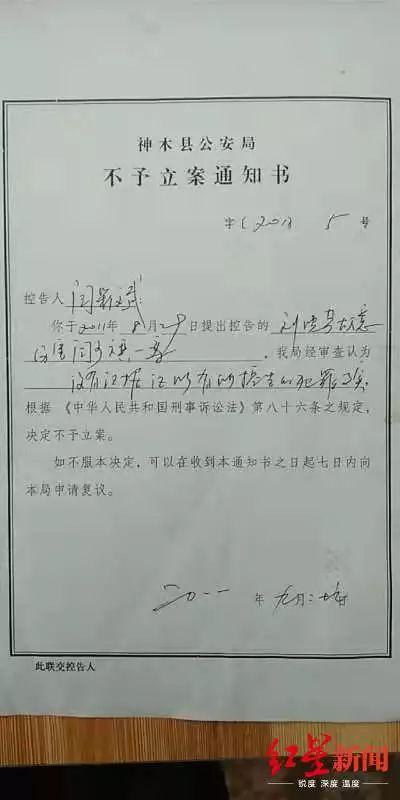 神木县公安局
不予立案通知书
字(2011) 5 号
控告人闫
你于2011年8月29日提出控告的刘
伤害闫 一案,我局经审查认为
没有证据证明有所控告的犯罪事实
根据《中华人民共和国刑事诉讼法》第八十六条之规定,
决定不予立案。
如不服本决定,可以在收到本通知书之日起七日内向
本局申请复议。
二〇一一 年 九月二 日
此联交控告人
红星新闻
锐度 深度 温度